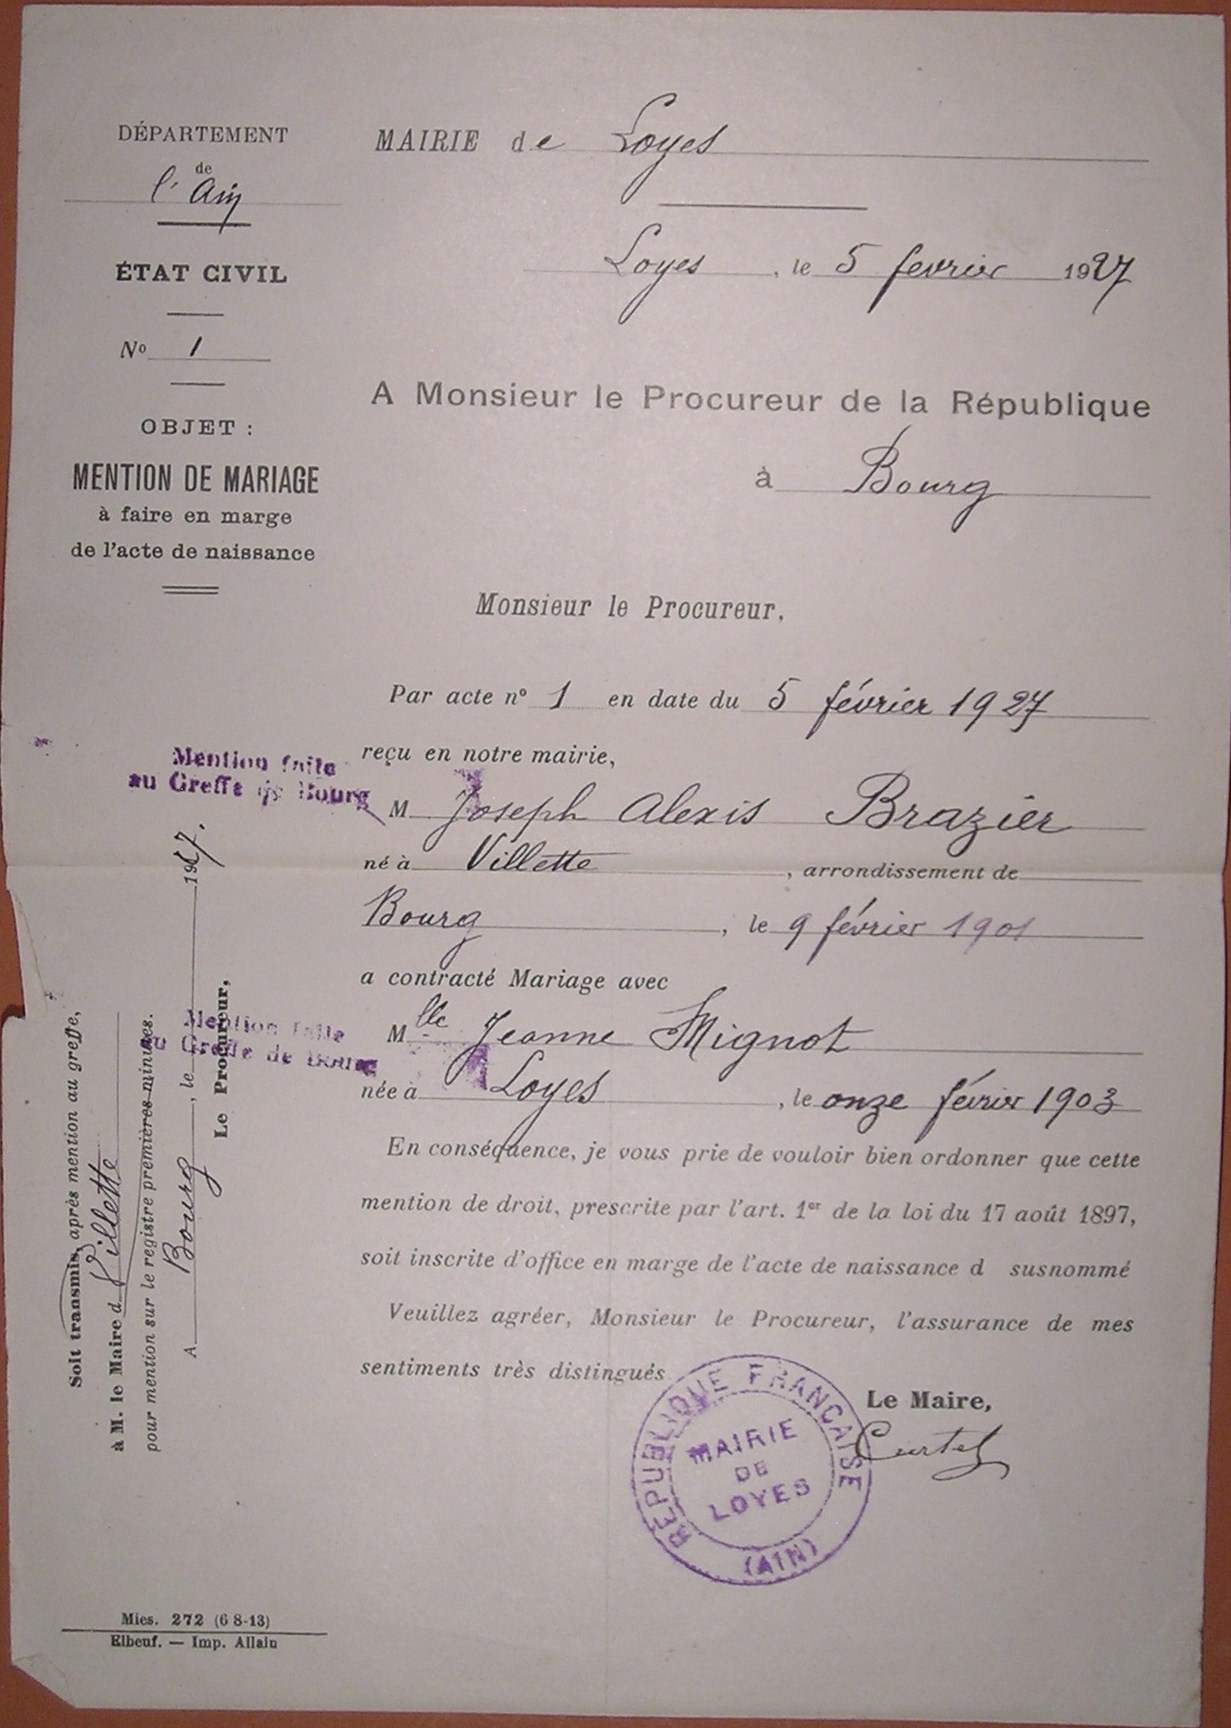 DÉPARTEMENT
de
l'Ain
ÉTAT CIVIL
No 1
OBJET :
MENTION DE MARIAGE
à faire en marge
de l'acte de naissance
MAIRIE de Loyes
Loyes, le 5 fevrier 1927
A Monsieur le Procureur de la République
à Bourg
Monsieur le Procureur,
Par acte nº 1 en date du 5 février 1927
reçu en notre mairie,
M Joseph Alexis Brazier
né à Villette, arrondissement de
Bourg, le 9 février 1901
a contracté Mariage avec
Mlle Jeanne Mignot
née à Loyes, le onze février 1903
En conséquence, je vous prie de vouloir bien ordonner que cette
mention de droit, prescrite par l'art. 1er de la loi du 17 août 1897,
soit inscrite d'office en marge de l'acte de naissance d susnommé
Veuillez agréer, Monsieur le Procureur, l'assurance de mes
sentiments très distingués
Le Maire,
Curtel
RÉPUBLIQUE FRANÇAISE
MAIRIE
DE
LOYES
(AIN)
Mention faite
au Greffe de Bourg
Mention faite
au Greffe de Bourg
Soit transmis, après mention au greffe,
à M. le Maire d Villette
pour mention sur le registre premières minutes.
A Bourg, le 1927.
Le Procureur,
Mies. 272 (6 8-13)
Elbeuf. — Imp. Allain